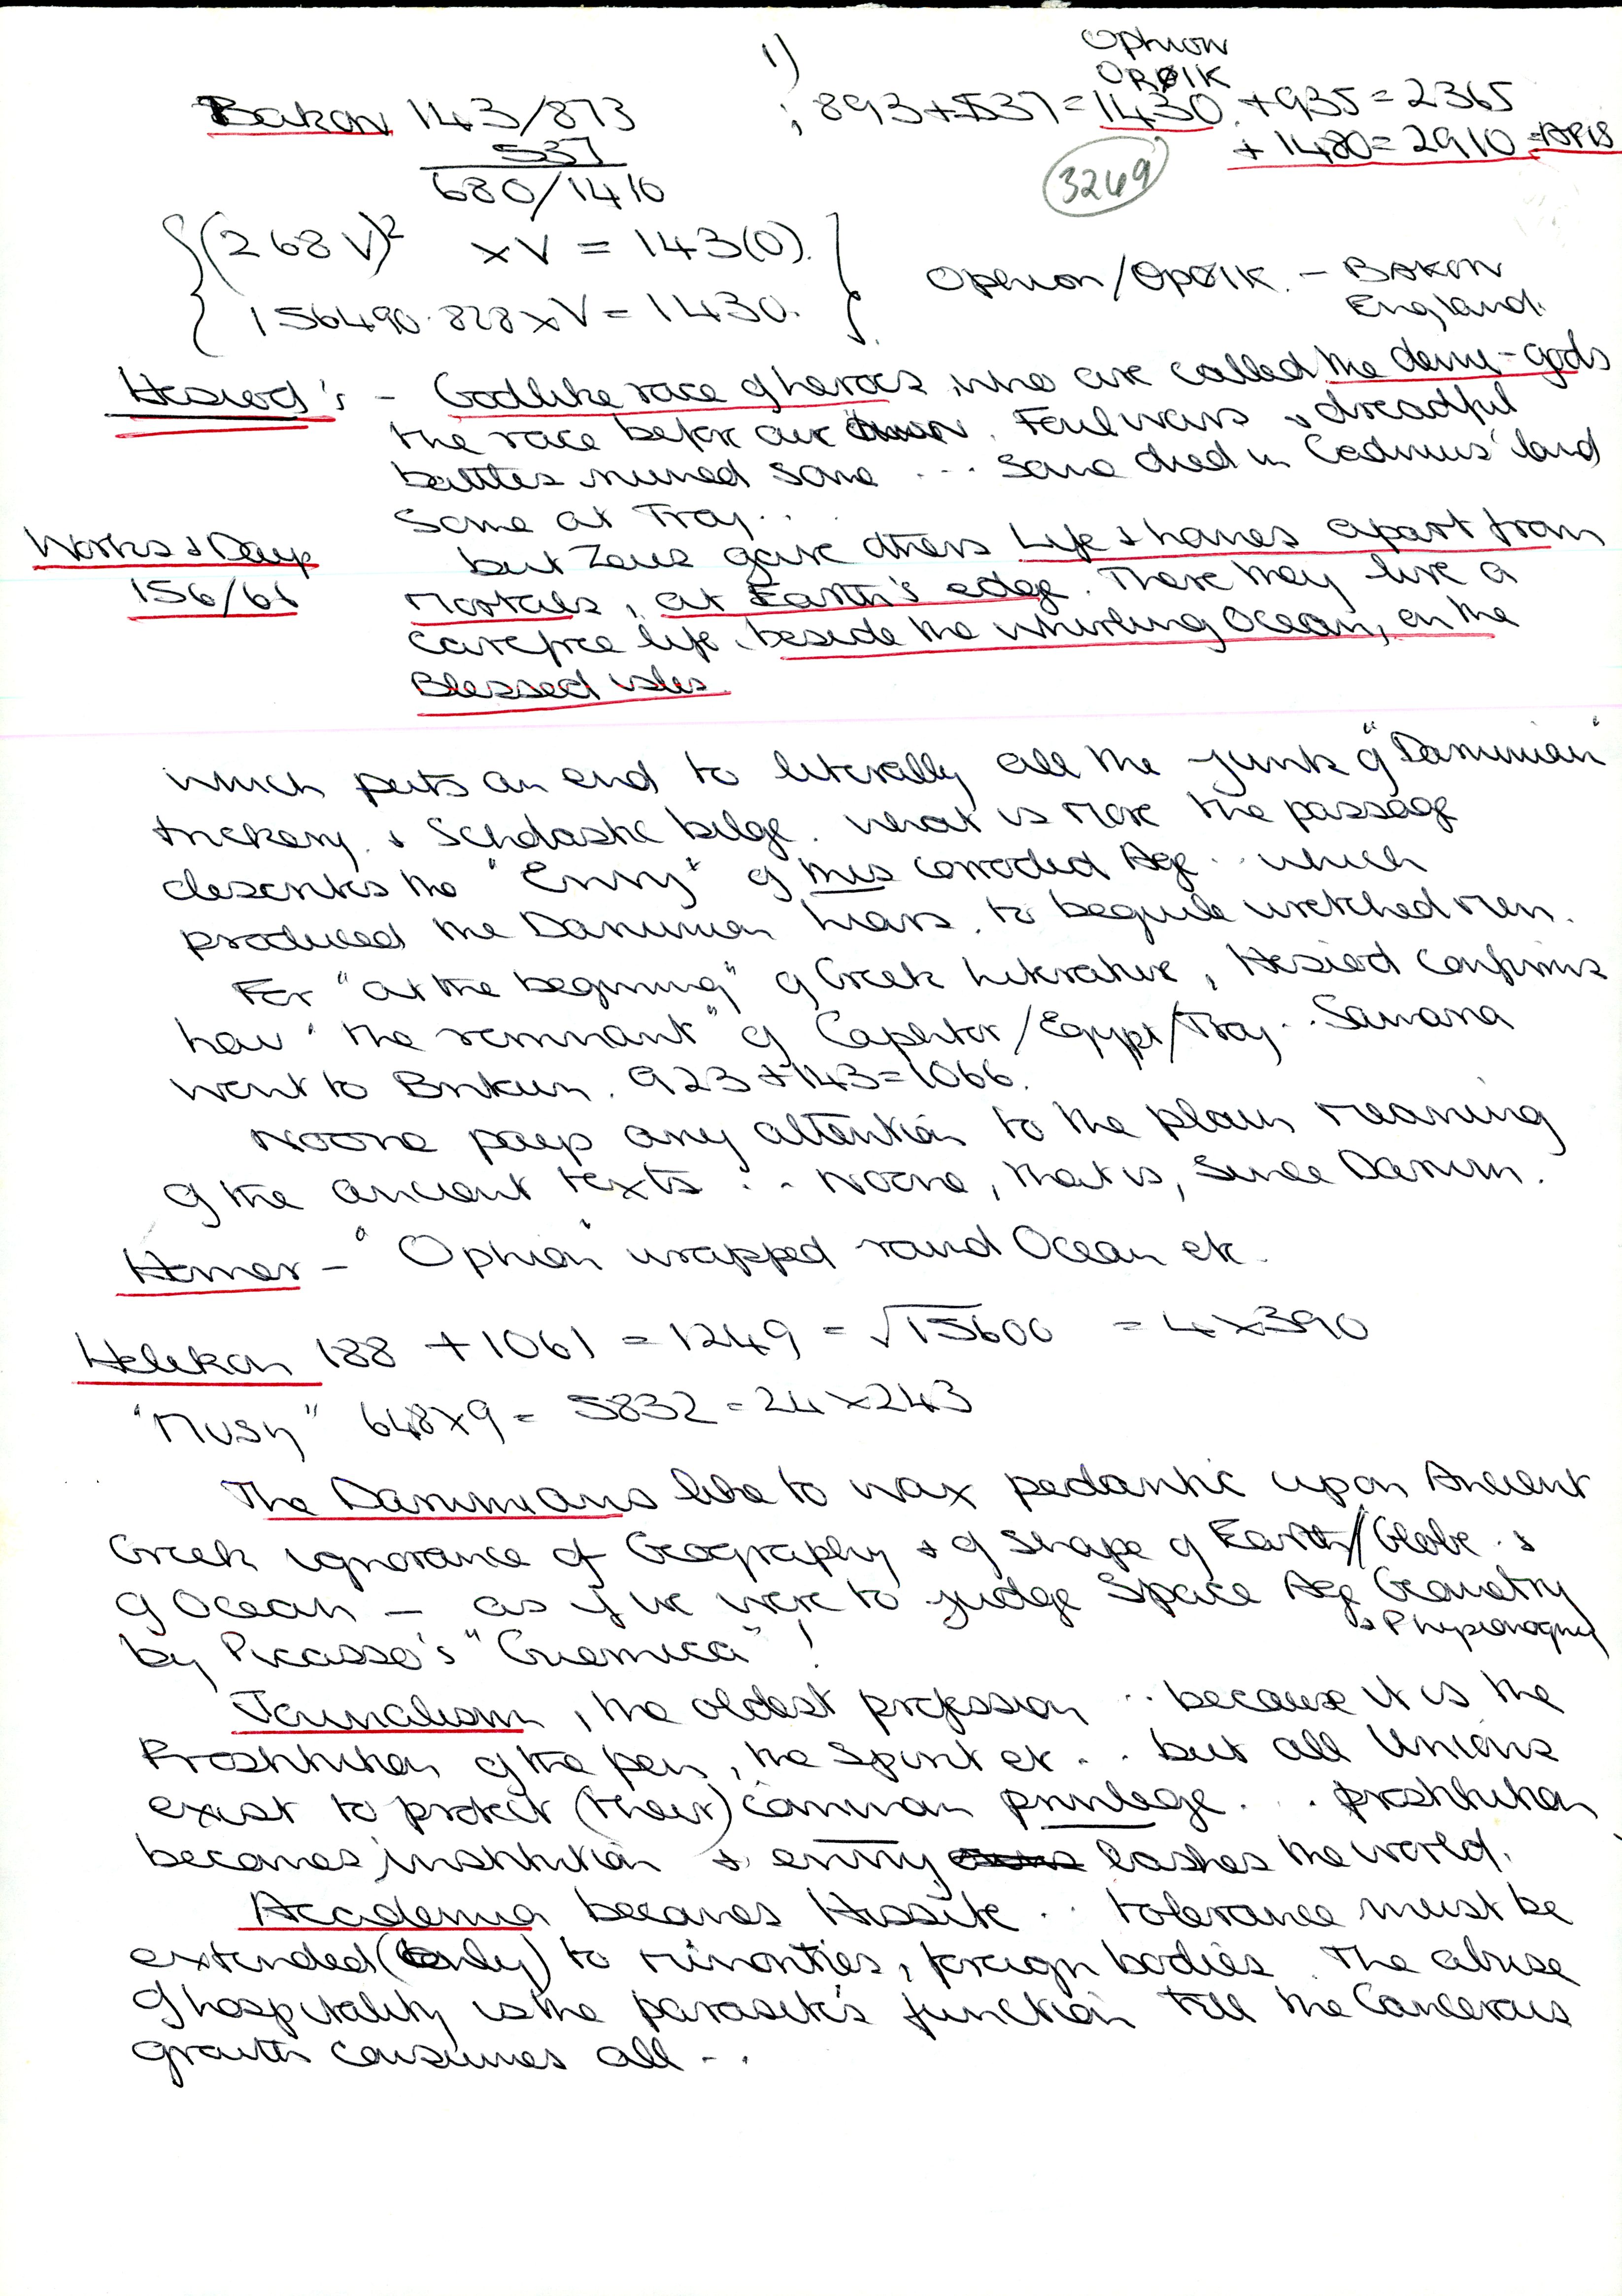 1)
Ophion
OPØIK
Bakon 143/873 ; 893+537=1430. +935=2365
537 + 1480=2910 =APIS
680/1410 3249
(268V)² xV = 143(0).
156490.828xV=1430. Ophion/OPØIK. - BAKON
England.
Hesiod's - Godlike race of heroes, who are called the demi-gods
the race before our own. Foul wars & dreadful
battles ruined some ... some died in Cadmus' land
some at Troy..
Works & Days but Zeus gave others Life & homes apart from
156/61 Mortals, at Earth's edge. There they live a
carefree life, beside the whirling Ocean, on the
Blessed isles.
which puts an end to literally all the junk of "Darwinian"
trickery & Scholastic bilge. What is more the passage
describes the "Envy" of this corroded Age.. which
produced the Darwinian liars, to beguile wretched men.
For "at the beginning" of Greek Literature, Hesiod confirms
how "the remnant" of Caphtor/Egypt/Troy.. Samaria
went to Britain. 923+143=1066.
Noone pays any attention to the plain meaning
of the ancient texts ... Noone, that is, since Darwin.
Homer - "Ophion" wrapped round Ocean etc.
Helikon 188 + 1061 = 1249 = √15600 = 4x390
"Musη" 648x9 = 5832 = 24x243
The Darwinians like to wax pedantic upon Ancient
Greek ignorance of Geography & of shape of Earth/Globe &
of Ocean - as if we were to judge Space Age Geometry
& Physionogmy
by Picasso's "Guernica"!
Journalism, the oldest profession .. because it is the
Prostitution of the pen, the Spirit etc.. but all Unions
exist to protect (their) common privilege... prostitution
becomes institution & envy lashes the world.
Academia becomes Hussite.. tolerance must be
extended (only) to minorities, foreign bodies. The abuse
of hospitality is the parasite's function till the Cancerous
growth consumes all ..